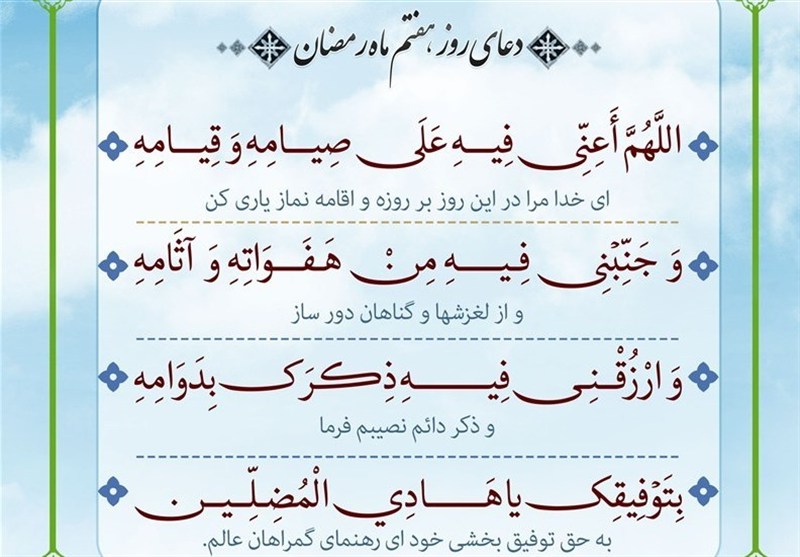 دعای روز هفتم ماه رمضان
اللَّهُمَّ أَعِنِّی فِیهِ عَلَی صِیامِهِ وَ قِیامِهِ
ای خدا مرا در این روز بر روزه و اقامه نماز یاری کن
وَ جَنِّبْنِی فِیهِ مِنْ هَفَوَاتِهِ وَ آثَامِهِ
و از لغزشها و گناهان دور ساز
وَ ارْزُقْنِی فِیهِ ذِکرَک بِدَوَامِهِ
و ذکر دائم نصیبم فرما
بِتَوْفِیقِک یا هَادِي الْمُضِلِّینَ
به حق توفیق بخشی خود ای رهنمای گمراهان عالم.